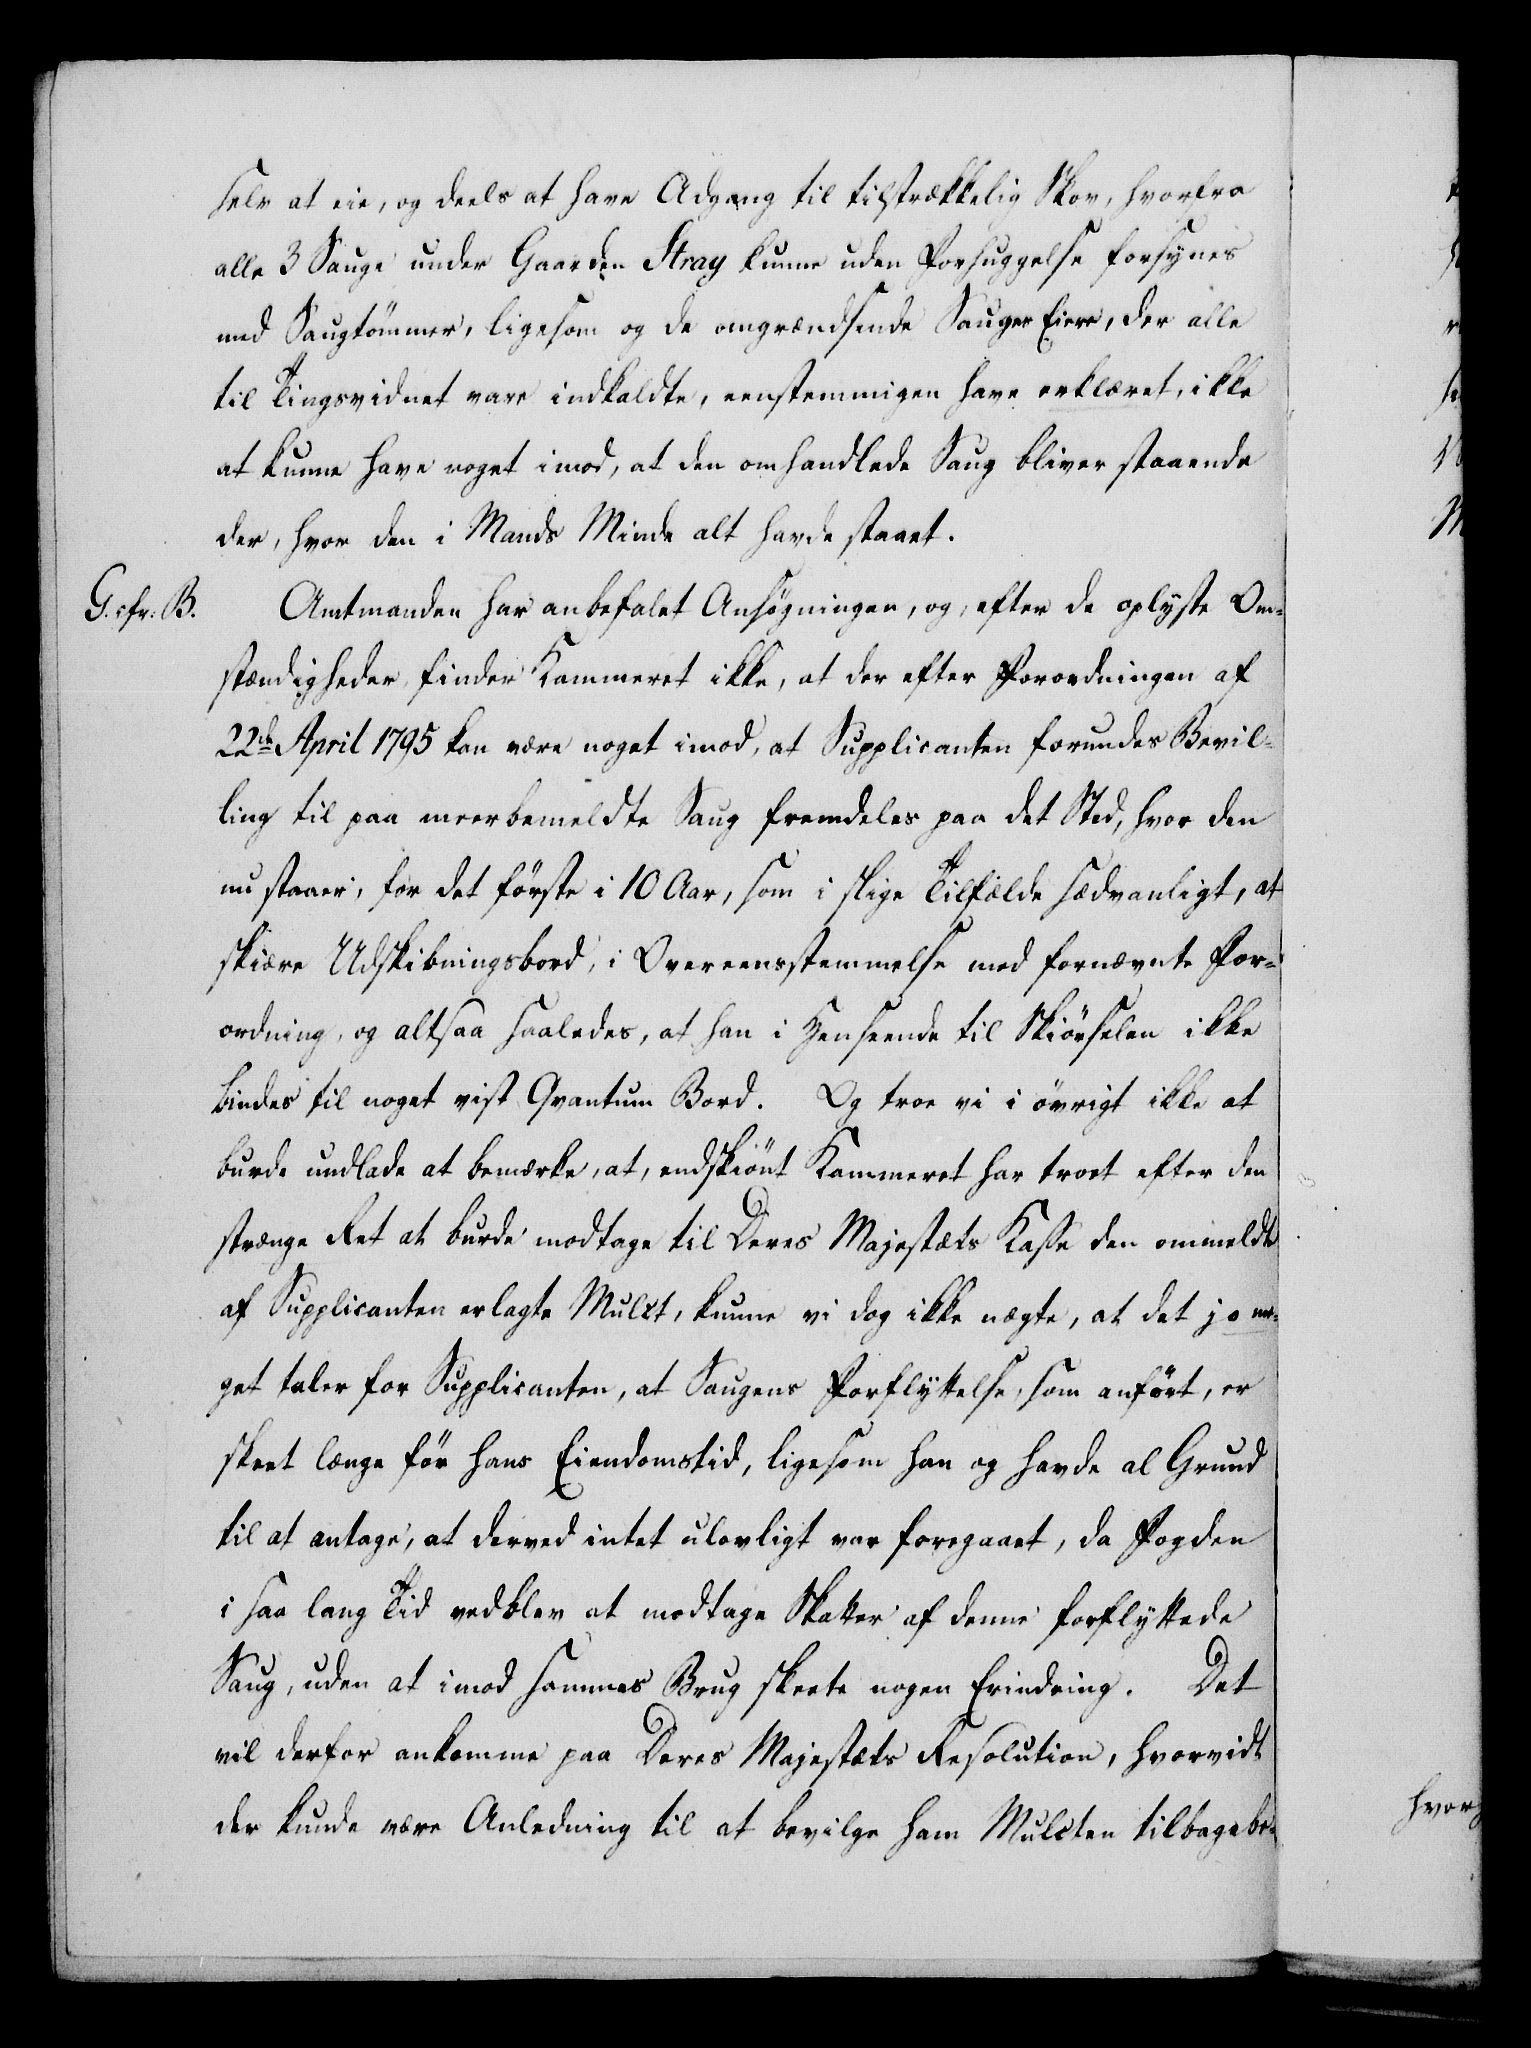 selv at eie, og deels at have Adgang til tilstrækkelig Skov, hvorfra
alle 3 Sauge under Gaarden Stray kunne uden Forhuggelse forsynes
med Saugtömmer, ligesom og de omgrændsende Sauger Eiere, der alle
til Tingsvidnet vare indkaldte, eenstemmigen have erklæret, ikke
at kunne have noget imod, at den omhandlede Saug bliver staaende
der, hvor den i Mands Minde alt havde staaet.
G. cfr: B. Amtmanden har anbefalet Ansögningen, og, efter de oplyste Om=
stændigheder finder Kammeret ikke, at der efter Forordningen af
22de April 1795 kan være noget imod, at Supplicanten forundes Bevil=
ling til paa meerbemeldte Saug fremdeles paa det Sted, hvor den
nu staaer, for det förste i 10 Aar, som i slige Tilfælde sædvanligt, at
skiære Udskibningsbord, i Overeensstemmelse med fornævnte For=
ordning, og altsaa saaledes, at han i Henseende til Skiörselen ikke
bindes til noget vist Qvantum Bord. Og troe vi i övrigt ikke at
burde undlade at bemærke, at, endskiönt Kammeret har troet efter den
strænge Ret at burde modtage til Deres Majestæts Kasse den ommeldte
af Supplicanten erlagte Mulct, kunne vi dog ikke nægte, at det jo me=
get taler for Supplicanten, at Saugens Forflyttelse, som anfört, er
skeet længe för hans Eiendomstid, ligesom han og havde al Grund
til at antage, at derved intet ulovligt var foregaaet, da Fogden
i saa lang Tid vedblev at modtage Skatter af denne forflyttede
Saug, uden at imod sammes Brug skeete nogen Erindring. Det
vil derfor ankomme paa Deres Majestæts Resolution, hvorvidt
der kunde være Anledning til at bevilge ham Mulcten tilbagebe=
hvor